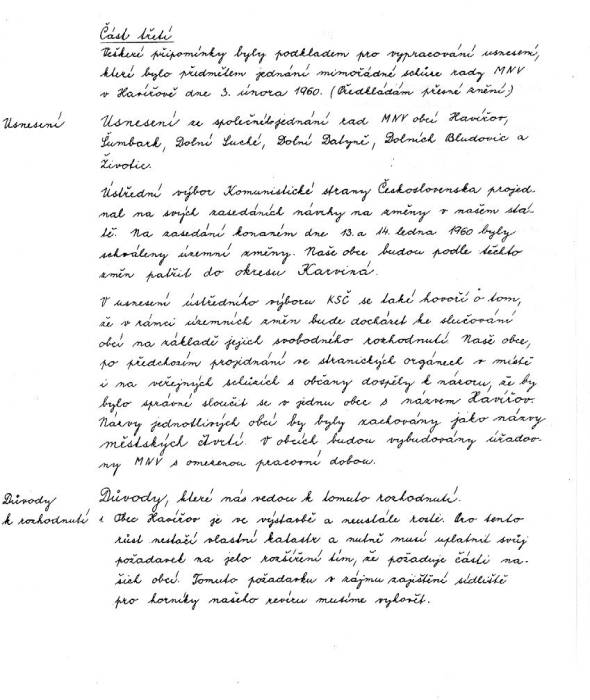 Část třetí
Veškeré připomínky byly podkladem pro vypracování usnesení,
které bylo předmětem jednání mimořádné schůze rady MNV
v Havířově dne 3. února 1960. (Předkládám přesné znění.)
Usnesení
Usnesení ze společného jednání rad MNV obcí Havířov,
Šumbark, Dolní Suché, Dolní Datyně, Dolních Bludovic a
Životic.
Ústřední výbor Komunistické strany Československa projed-
nal na svých zasedáních návrhy na změny v našem stá-
tě. Na zasedání konaném dne 13. a 14. ledna 1960 byly
schváleny územní změny. Naše obce budou podle těchto
změn patřit do okresu Karviná.
V usnesení ústředního výboru KSČ se také hovoří o tom,
že v rámci územních změn bude docházet ke slučování
obcí na základě jejich svobodného rozhodnutí. Naše obce,
po předchozím projednání ve stranických orgánech v místě
i na veřejných schůzích s občany dospěly k názoru, že by
bylo správné sloučit se v jednu obec s názvem Havířov.
Názvy jednotlivých obcí by byly zachovány jako názvy
městských čtvrtí. V obcích budou vybudovány úřadov-
ny MNV s omezenou pracovní dobou.
Důvody
k rozhodnutí
Důvody, které nás vedou k tomuto rozhodnutí.
1. Obec Havířov je ve výstavbě a neustále roste. Pro tento
růst nestačí vlastní katastr a nutně musí uplatnit svůj
požadavek na jeho rozšíření tím, že požaduje části na-
šich obcí. Tomuto požadavku v zájmu zajištění sídliště
pro horníky našeho revíru musíme vyhovět.